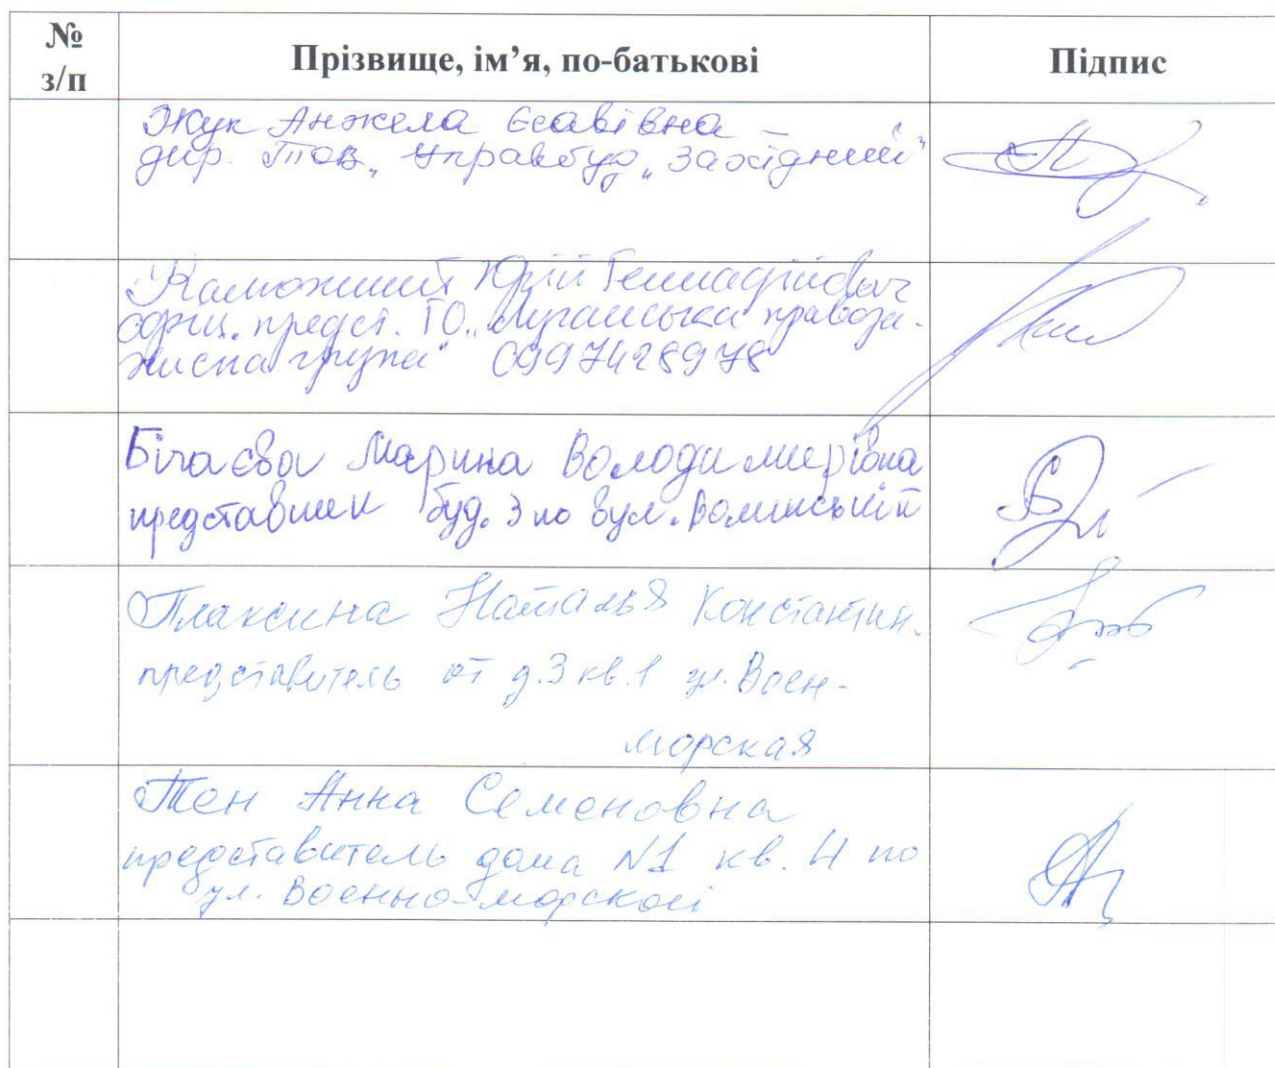 №
з/п
Прізвище, ім’я, по-батькові
Підпис
Жук Анжела Єсавівна –
дир. Тов „Управбуд „Західний"
Юрій Геннадійович
офіц. предст. ГО „Луганська правоза-
хисна група" 0997428978
Марина Володимирівна
представник буд. 3 по вул. Волинській
Плаксина Наталья Константин.
представитель от д.3 кв.1 ул. Воен-
морская
Тен Анна Семеновна
представитель дома №1 кв. 4 по
ул. Военно-морской